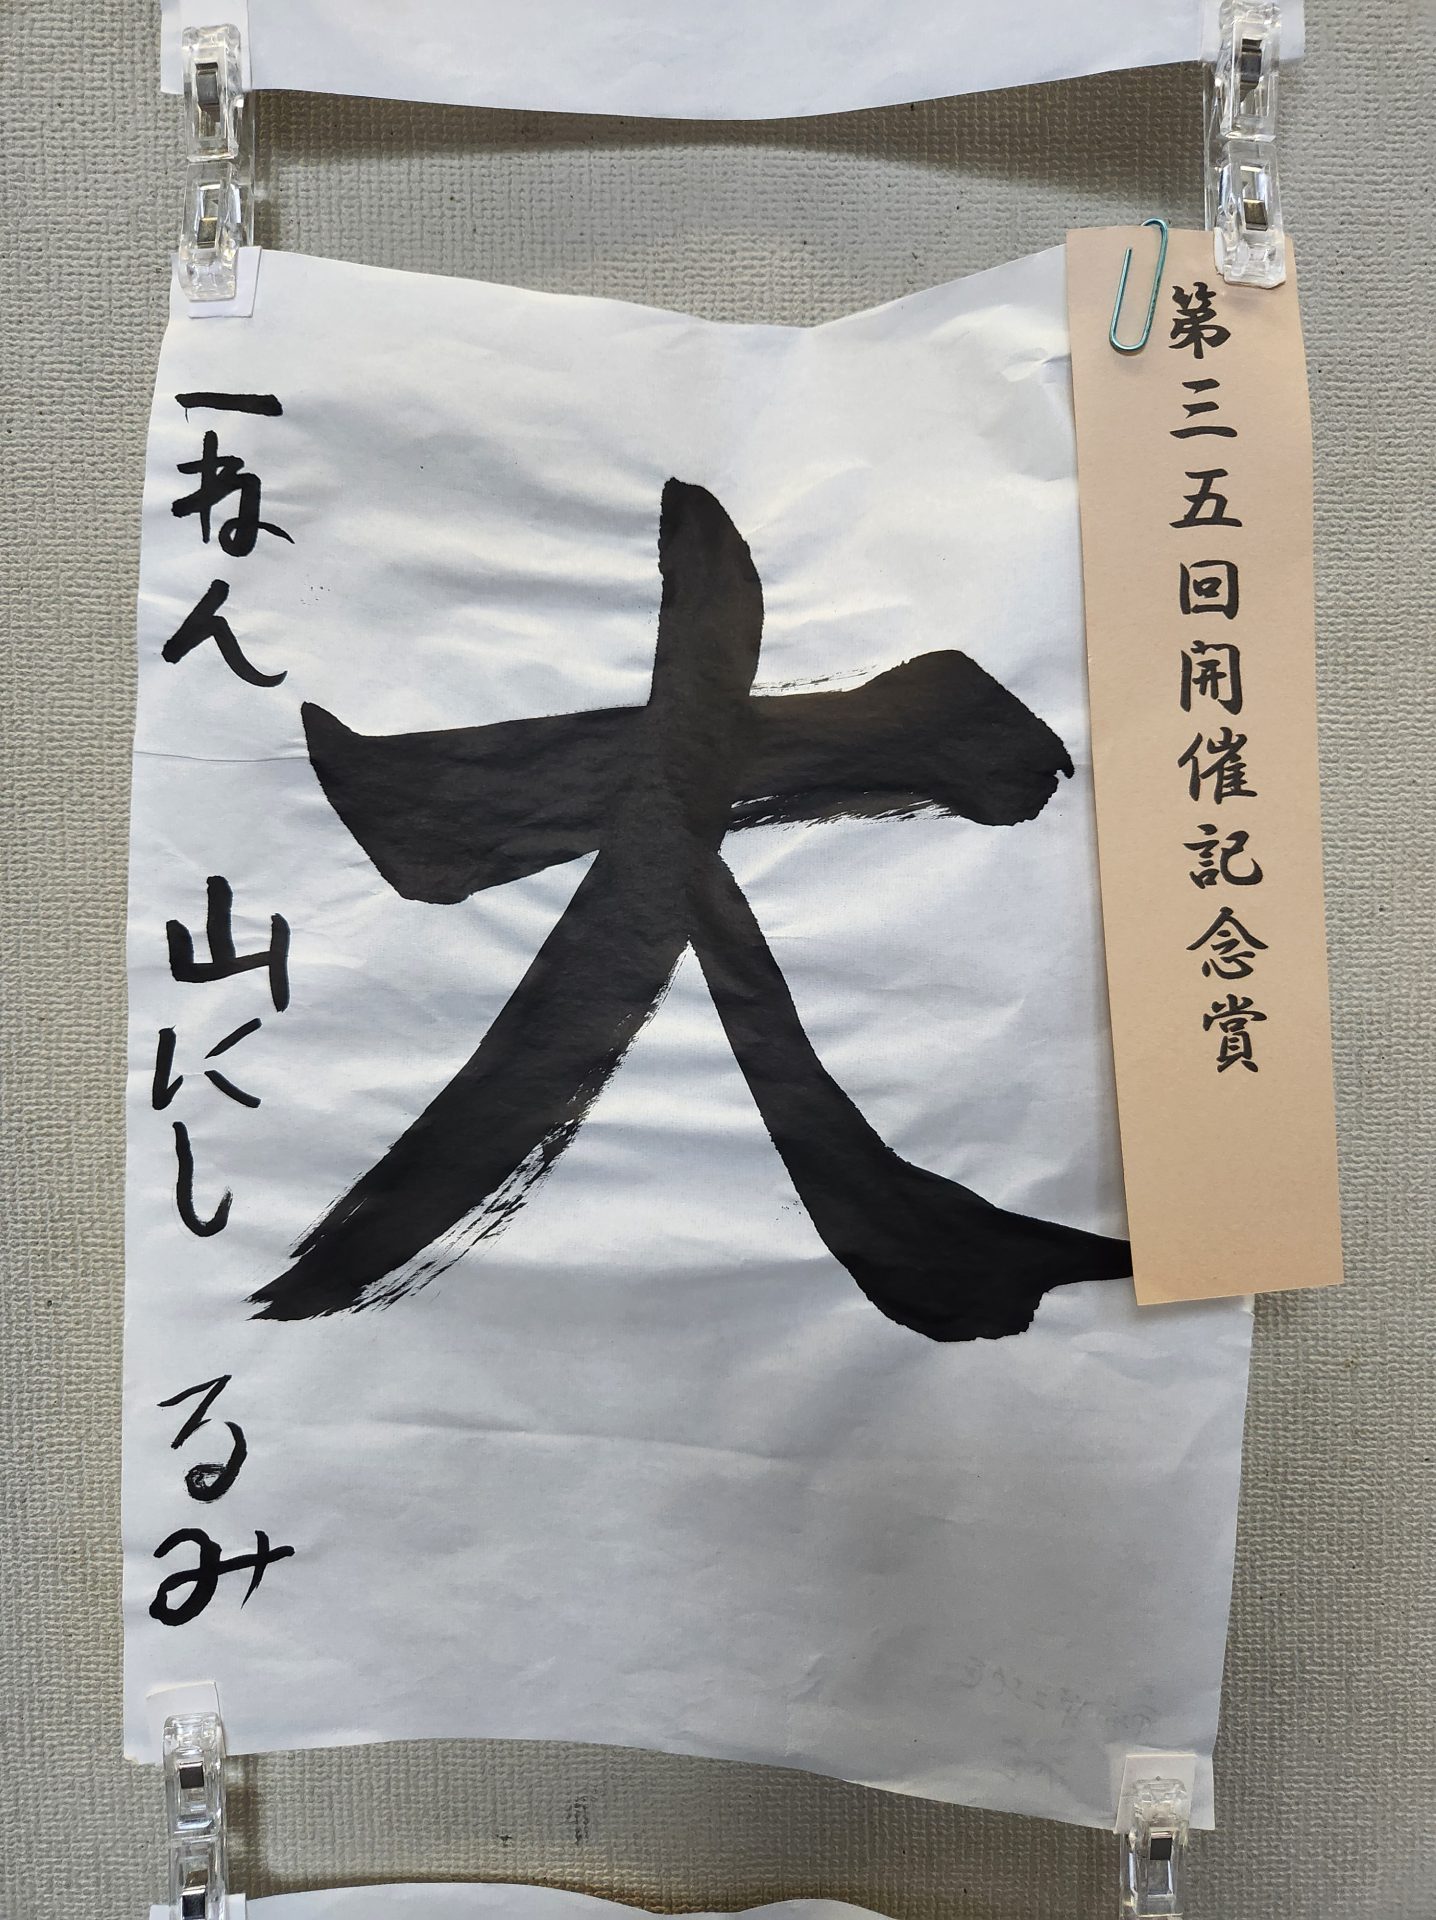 第三五回開催記念賞
大
一ねん 山にし るみ